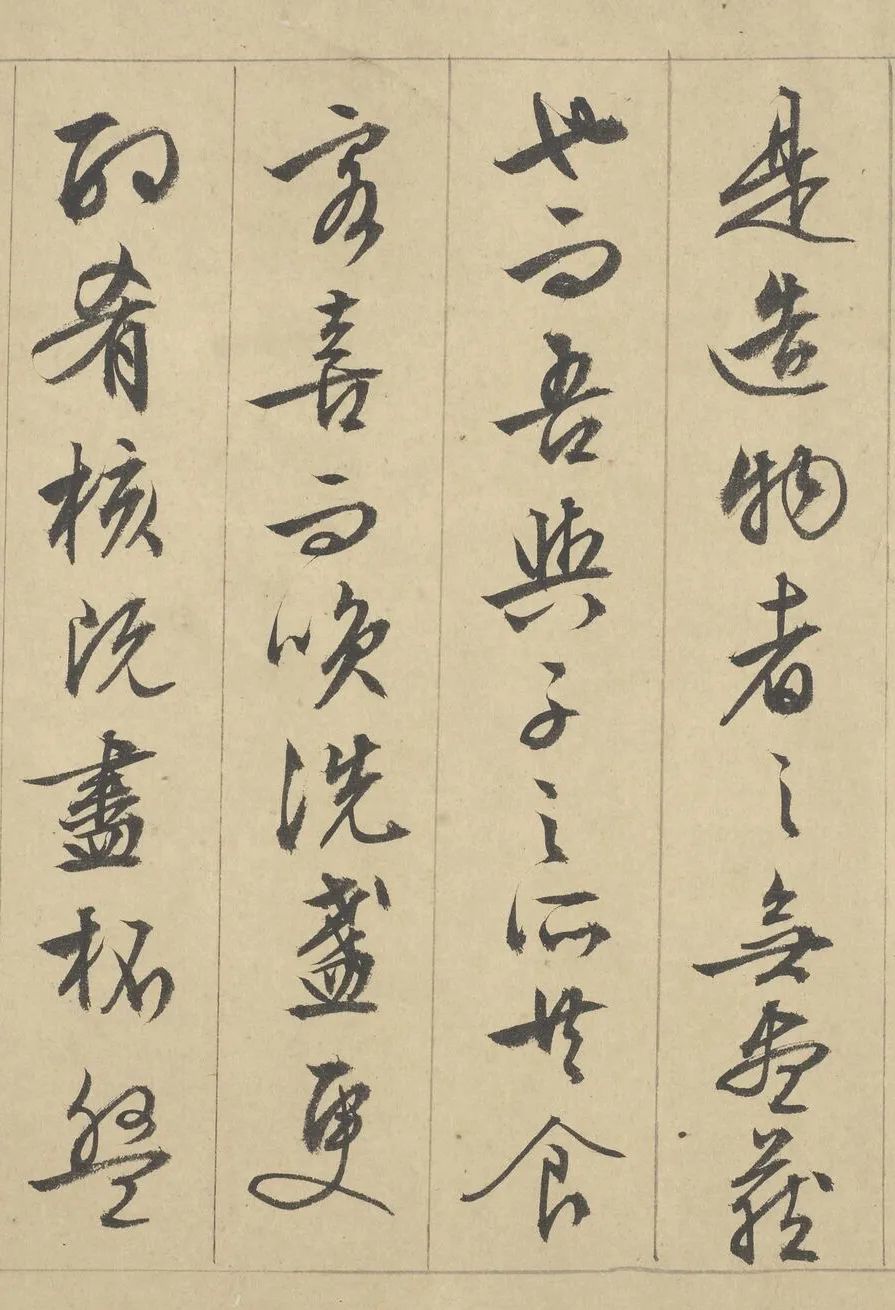 是造物者之無盡藏
也而吾與子之所共食
客喜而笑洗盞更
酌肴核既盡杯盤